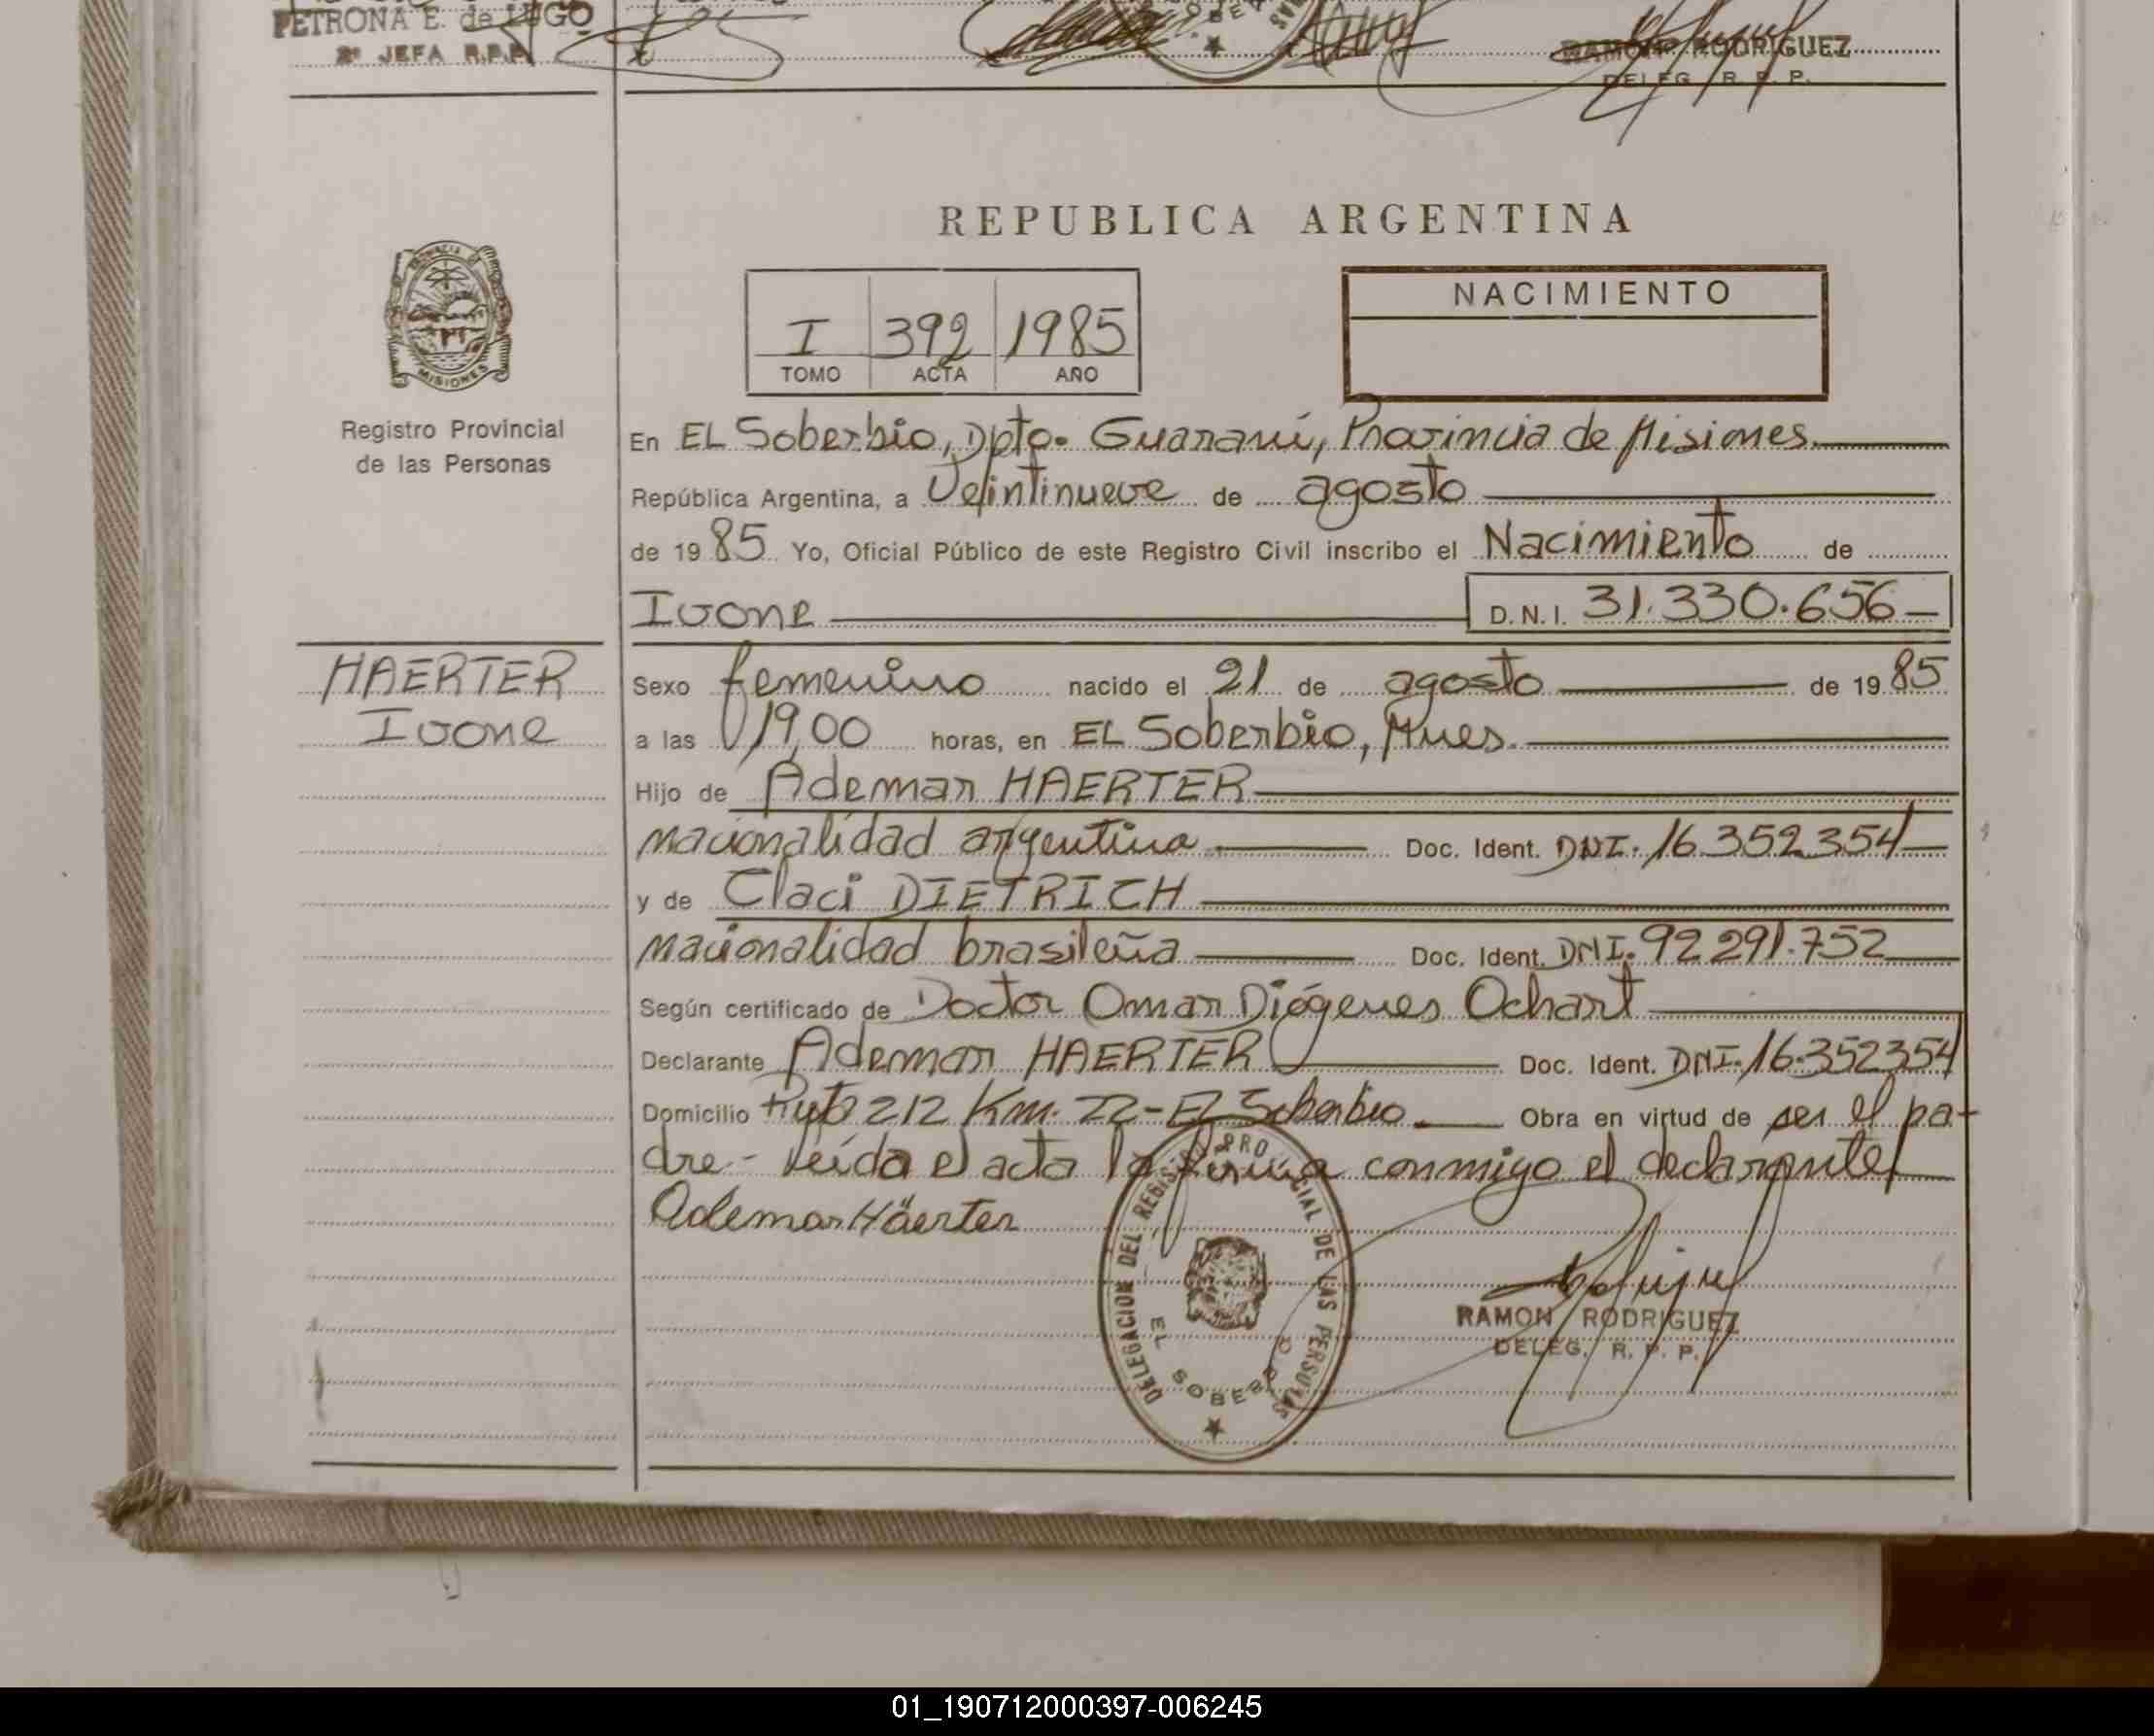 PETRONA E. de LUGO
2ª JEFA R.P.P.
RAMON RODRIGUEZ
DELEG. R. P. P.
REPUBLICA ARGENTINA
PROVINCIA
MISIONES
Registro Provincial
de las Personas
I 392 1985
TOMO ACTA AÑO
NACIMIENTO
En EL Soberbio, Dpto. Guaraní, Provincia de Misiones.
República Argentina, a Veintinueve de agosto
de 1985 Yo, Oficial Público de este Registro Civil inscribo el Nacimiento de
Ivone D.N.I. 31.330.656
HAERTER
Ivone
Sexo femenino nacido el 21 de agosto de 1985
a las 19,00 horas, en EL Soberbio, Mnes.
Hijo de Ademar HAERTER
nacionalidad argentina Doc. Ident. DNI. 16.352.354
y de Claci DIETRICH
nacionalidad brasileña Doc. Ident. DNI. 92.291.752
Según certificado de Doctor Omar Diógenes Ochart
Declarante Ademar HAERTER Doc. Ident. DNI. 16.352354
Domicilio Ruta 212 Km. 22-EL Soberbio. Obra en virtud de ser el pa-
dre.- Leída el acta la firma conmigo el declarante
Ademar Häerter
DELEGACION DEL REGISTRO PROVINCIAL DE LAS PERSONAS
EL SOBERBIO
RAMON RODRIGUEZ
DELEG. R. P. P.
01_190712000397-006245